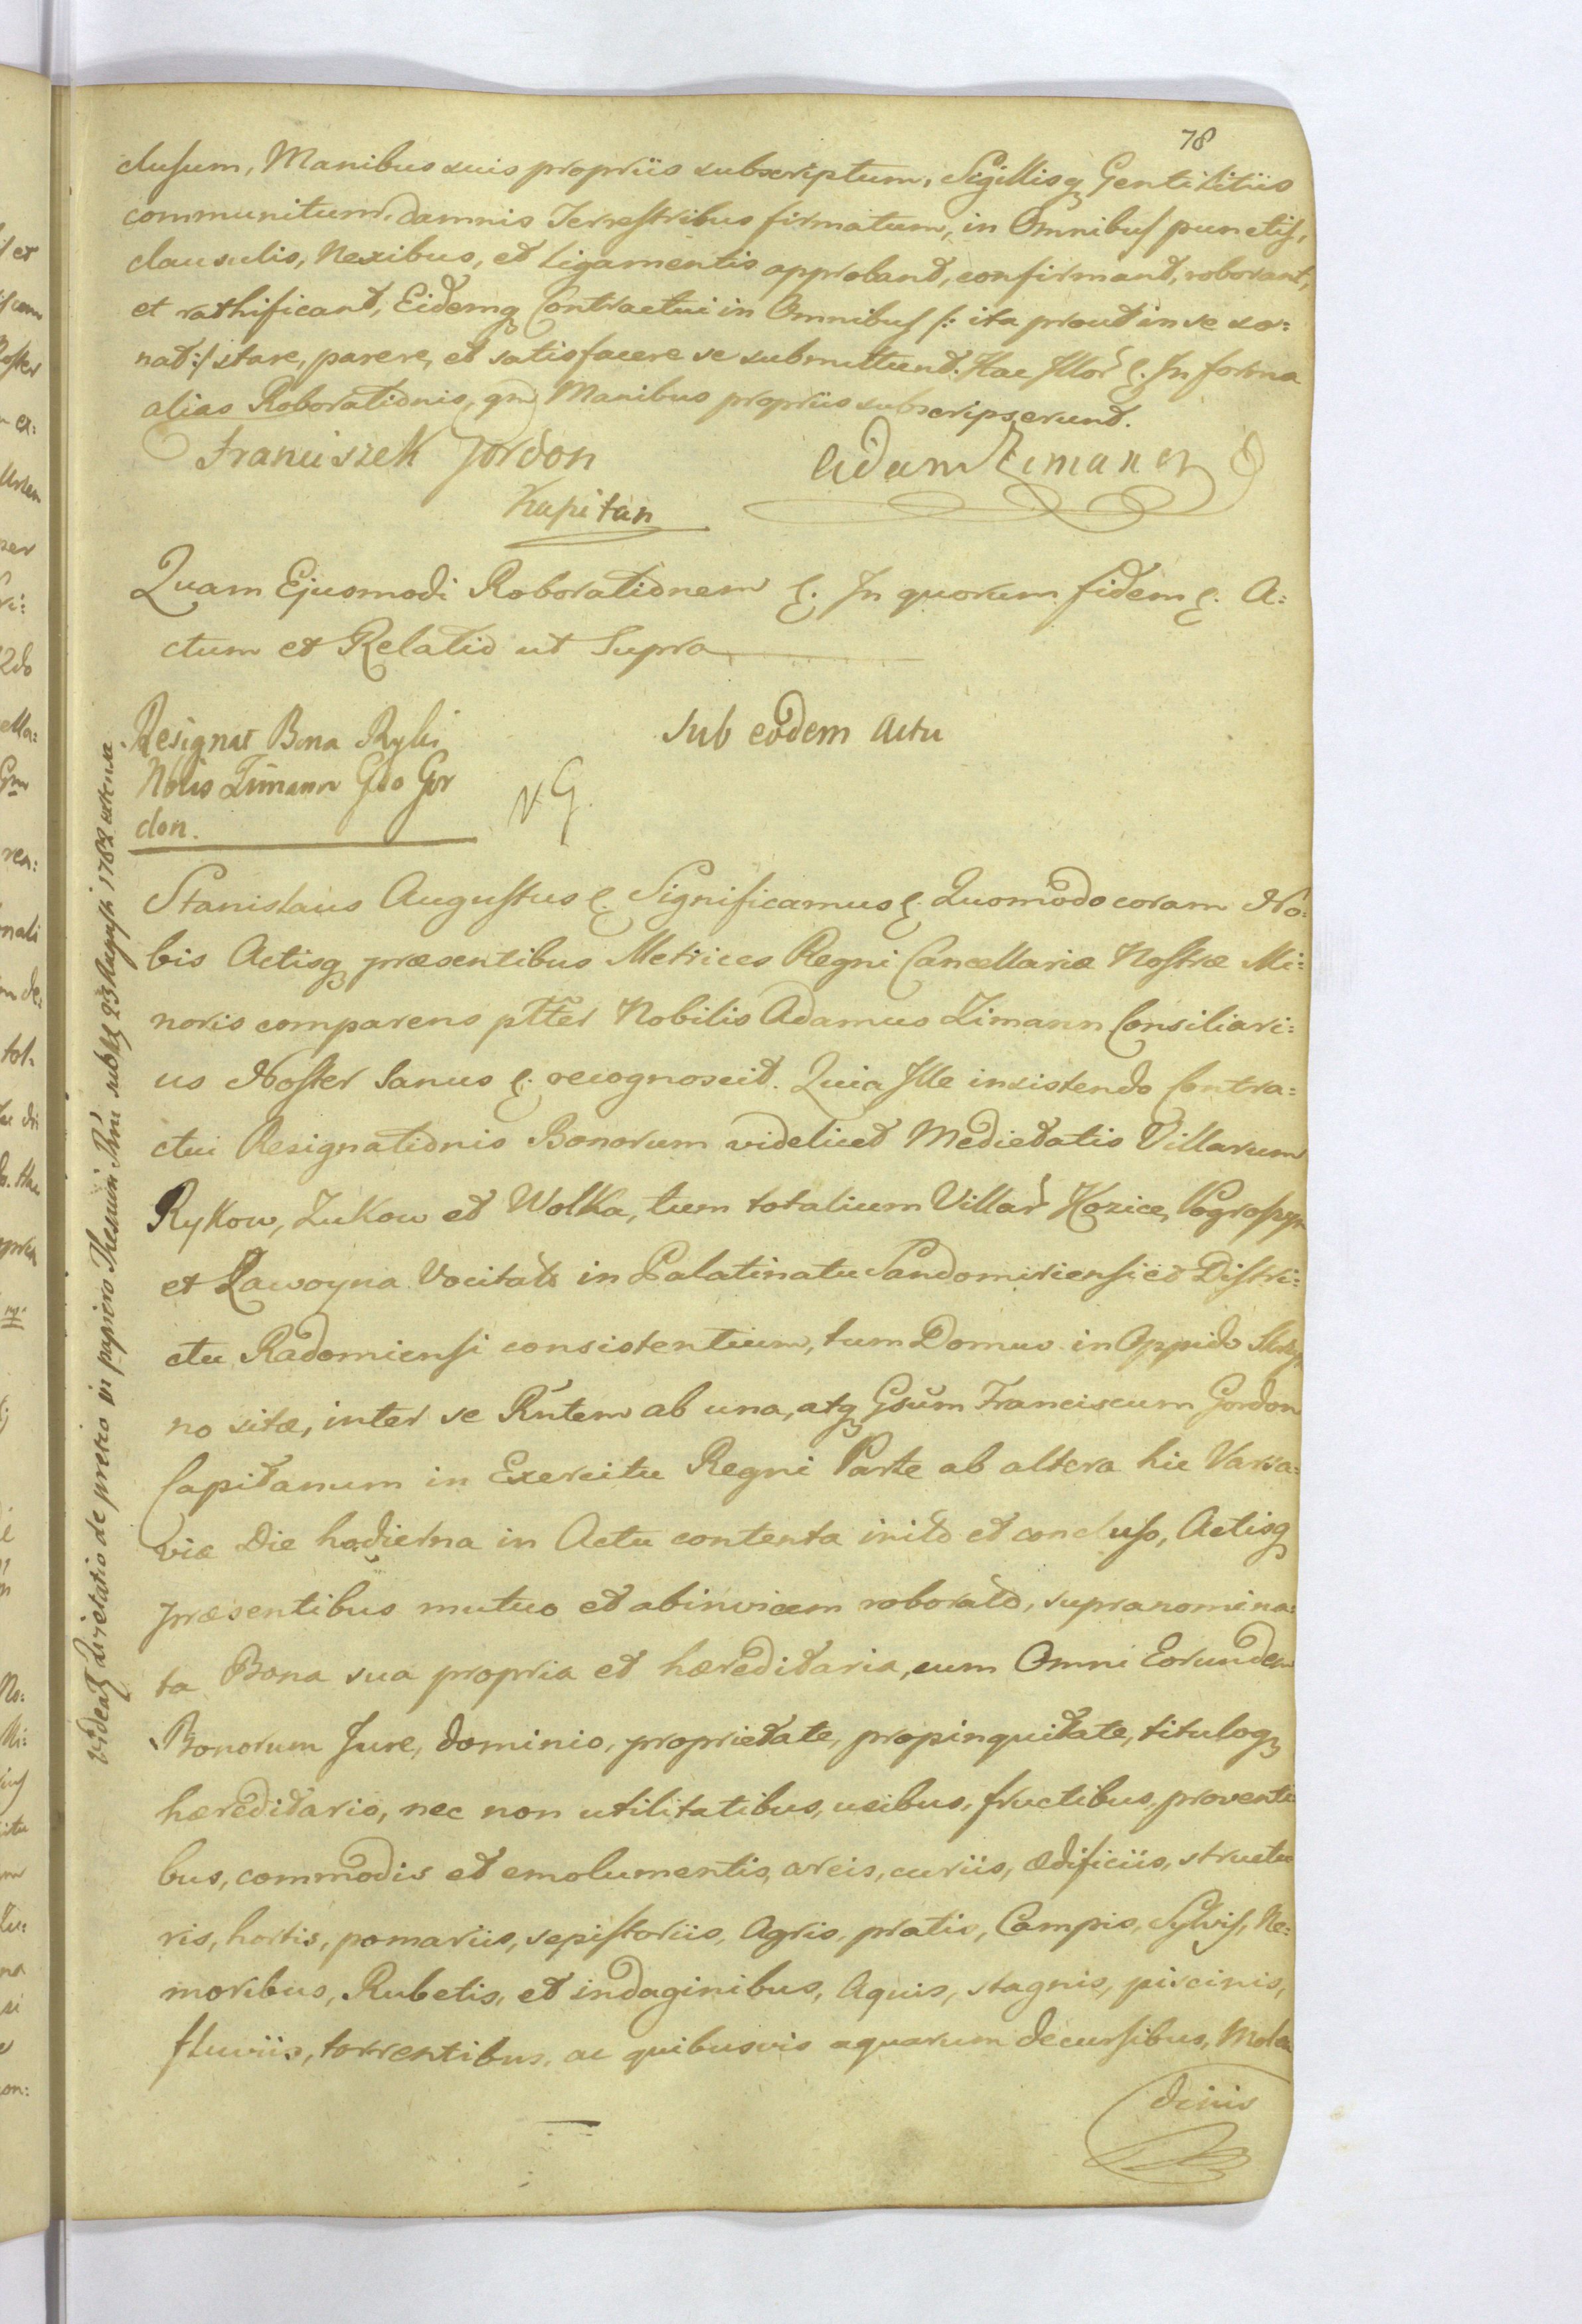 78
clusum, Manibus suis propriis subscriptum, Sigillisq Gentilitiis
communitum, damnis Terrestribus firmatum, in Omnibus punctis,
clausulis, Nexibus, et Ligamentis approband, confirmand, roborant,
et rathificant, Eidemq Contractui in Omnibus /: ita prout in se so=
nat :/ stare, parere, et satisfacere se submittunt. Hac Illor &. In forma
alias Roborationis, qm Manibus propriis subscripserunt.
Franciszek Gordon
Kapitan
Adam Zimann
Quam Ejusmodi Roborationem &. In quorum fidem &. A=
ctum et Relatio ut Supra
Resignat Bona Rylii
Nobilis Zimann Gso Gor
don.
N. G.
Sub eodem Actu
Stanislaus Augustus &. Significamus &. Quomodo coram No=
bis Actisq præsentibus Metrices Regni Cancellariæ Nostræ Mi=
noris comparens ptter Nobilis Adamus Zimann Consiliari=
us Noster Sanus &. recognoscit. Quia Ille insistendo Contra=
ctui Resignationis Bonorum videlicet Medietatis Villarum
Rykow, Zukow et Wolka, tum totalium Villar Kozice, Pogroszyn
et Zawoyna Vocitat in Palatinatu Sandomiriensi et Distri=
ctu Radomiensi consistentium, tum Domus in Oppido Skrzyn
no sitæ, inter se Rntem ab una, atq Gsum Franciscum Gordon
Capitanum in Exercitu Regni Parte ab altera hic Varsa=
viæ Die hodierna in Actu contenta inito et concluso, Actisq
præsentibus mutuo et abinvicem roborato, supranomina=
ta Bona sua propria et hæreditaria, cum Omni Eorundem
Bonorum Jure, dominio, proprietate, propinquitate, tituloq
hæreditario, nec non utilitatibus, usibus, fructibus, proventi
bus, commodis et emolumentis, areis, curiis, ædificiis, structu
ris, hortis, pomariis, sepistoriis, Agris, pratis, Campis, Sylvis, Ne=
moribus, Rubetis, et indaginibus, Aquis, stagnis, piscinis,
fluviis, torrentibus, ac quibusvis aquarum decursibus, Molen
dinis
Videat quietatio de pretio in papiro Thesauri Rni sub 23 Augusti 1782 extensa